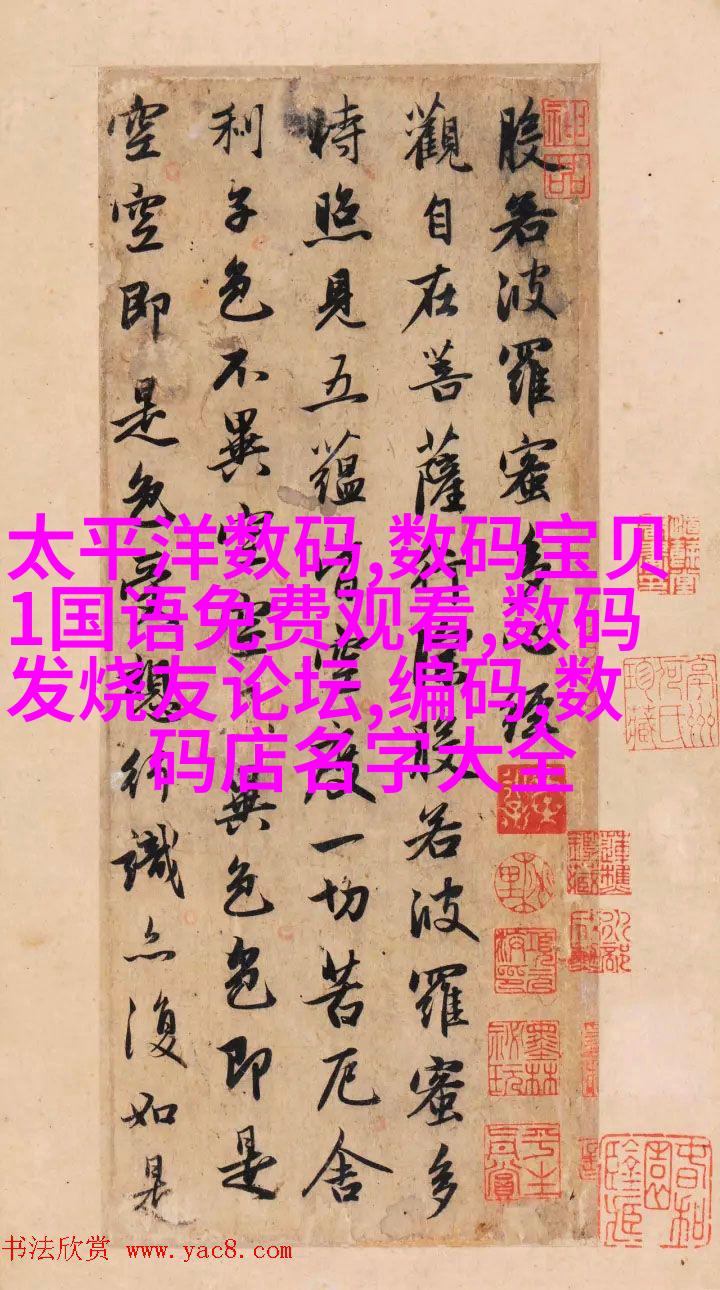 神品
般若波羅蜜多心經
觀自在菩薩行深般若波羅蜜多
時照見五蘊皆空度一切苦厄舍
利子色不異空空不異色色即是
空空即是色受想行識亦復如是
太平洋数码,数码宝贝
1国语免费观看,数码
发烧友论坛,编码,数
码店名字大全
墨林秘玩
书法欣赏 www.yac8.com